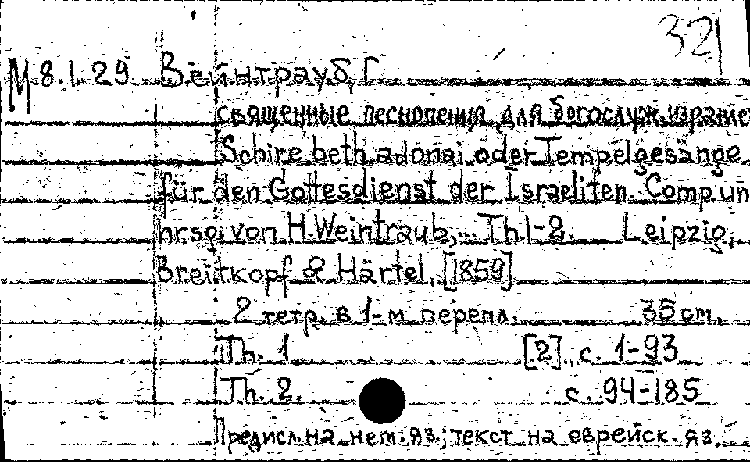 32
М 8.I.29 Вейнтрауб, Г.
священные песнопения для богослуж. израиле
Schire beth adonai oder Tempelgesänge
für den Gottesdienst der Israeliten. Comp un
hrsg von H. Weintraub, Th 1-2. Leipzig,
Breitkopf & Härtel, [1859]
2 тетр. в 1-м перепл. 35 cm.
Th. 1 [2], с. 1-93
Th. 2. с. 94-185
Предисл. на нем. яз.; текст на еврейск. яз.